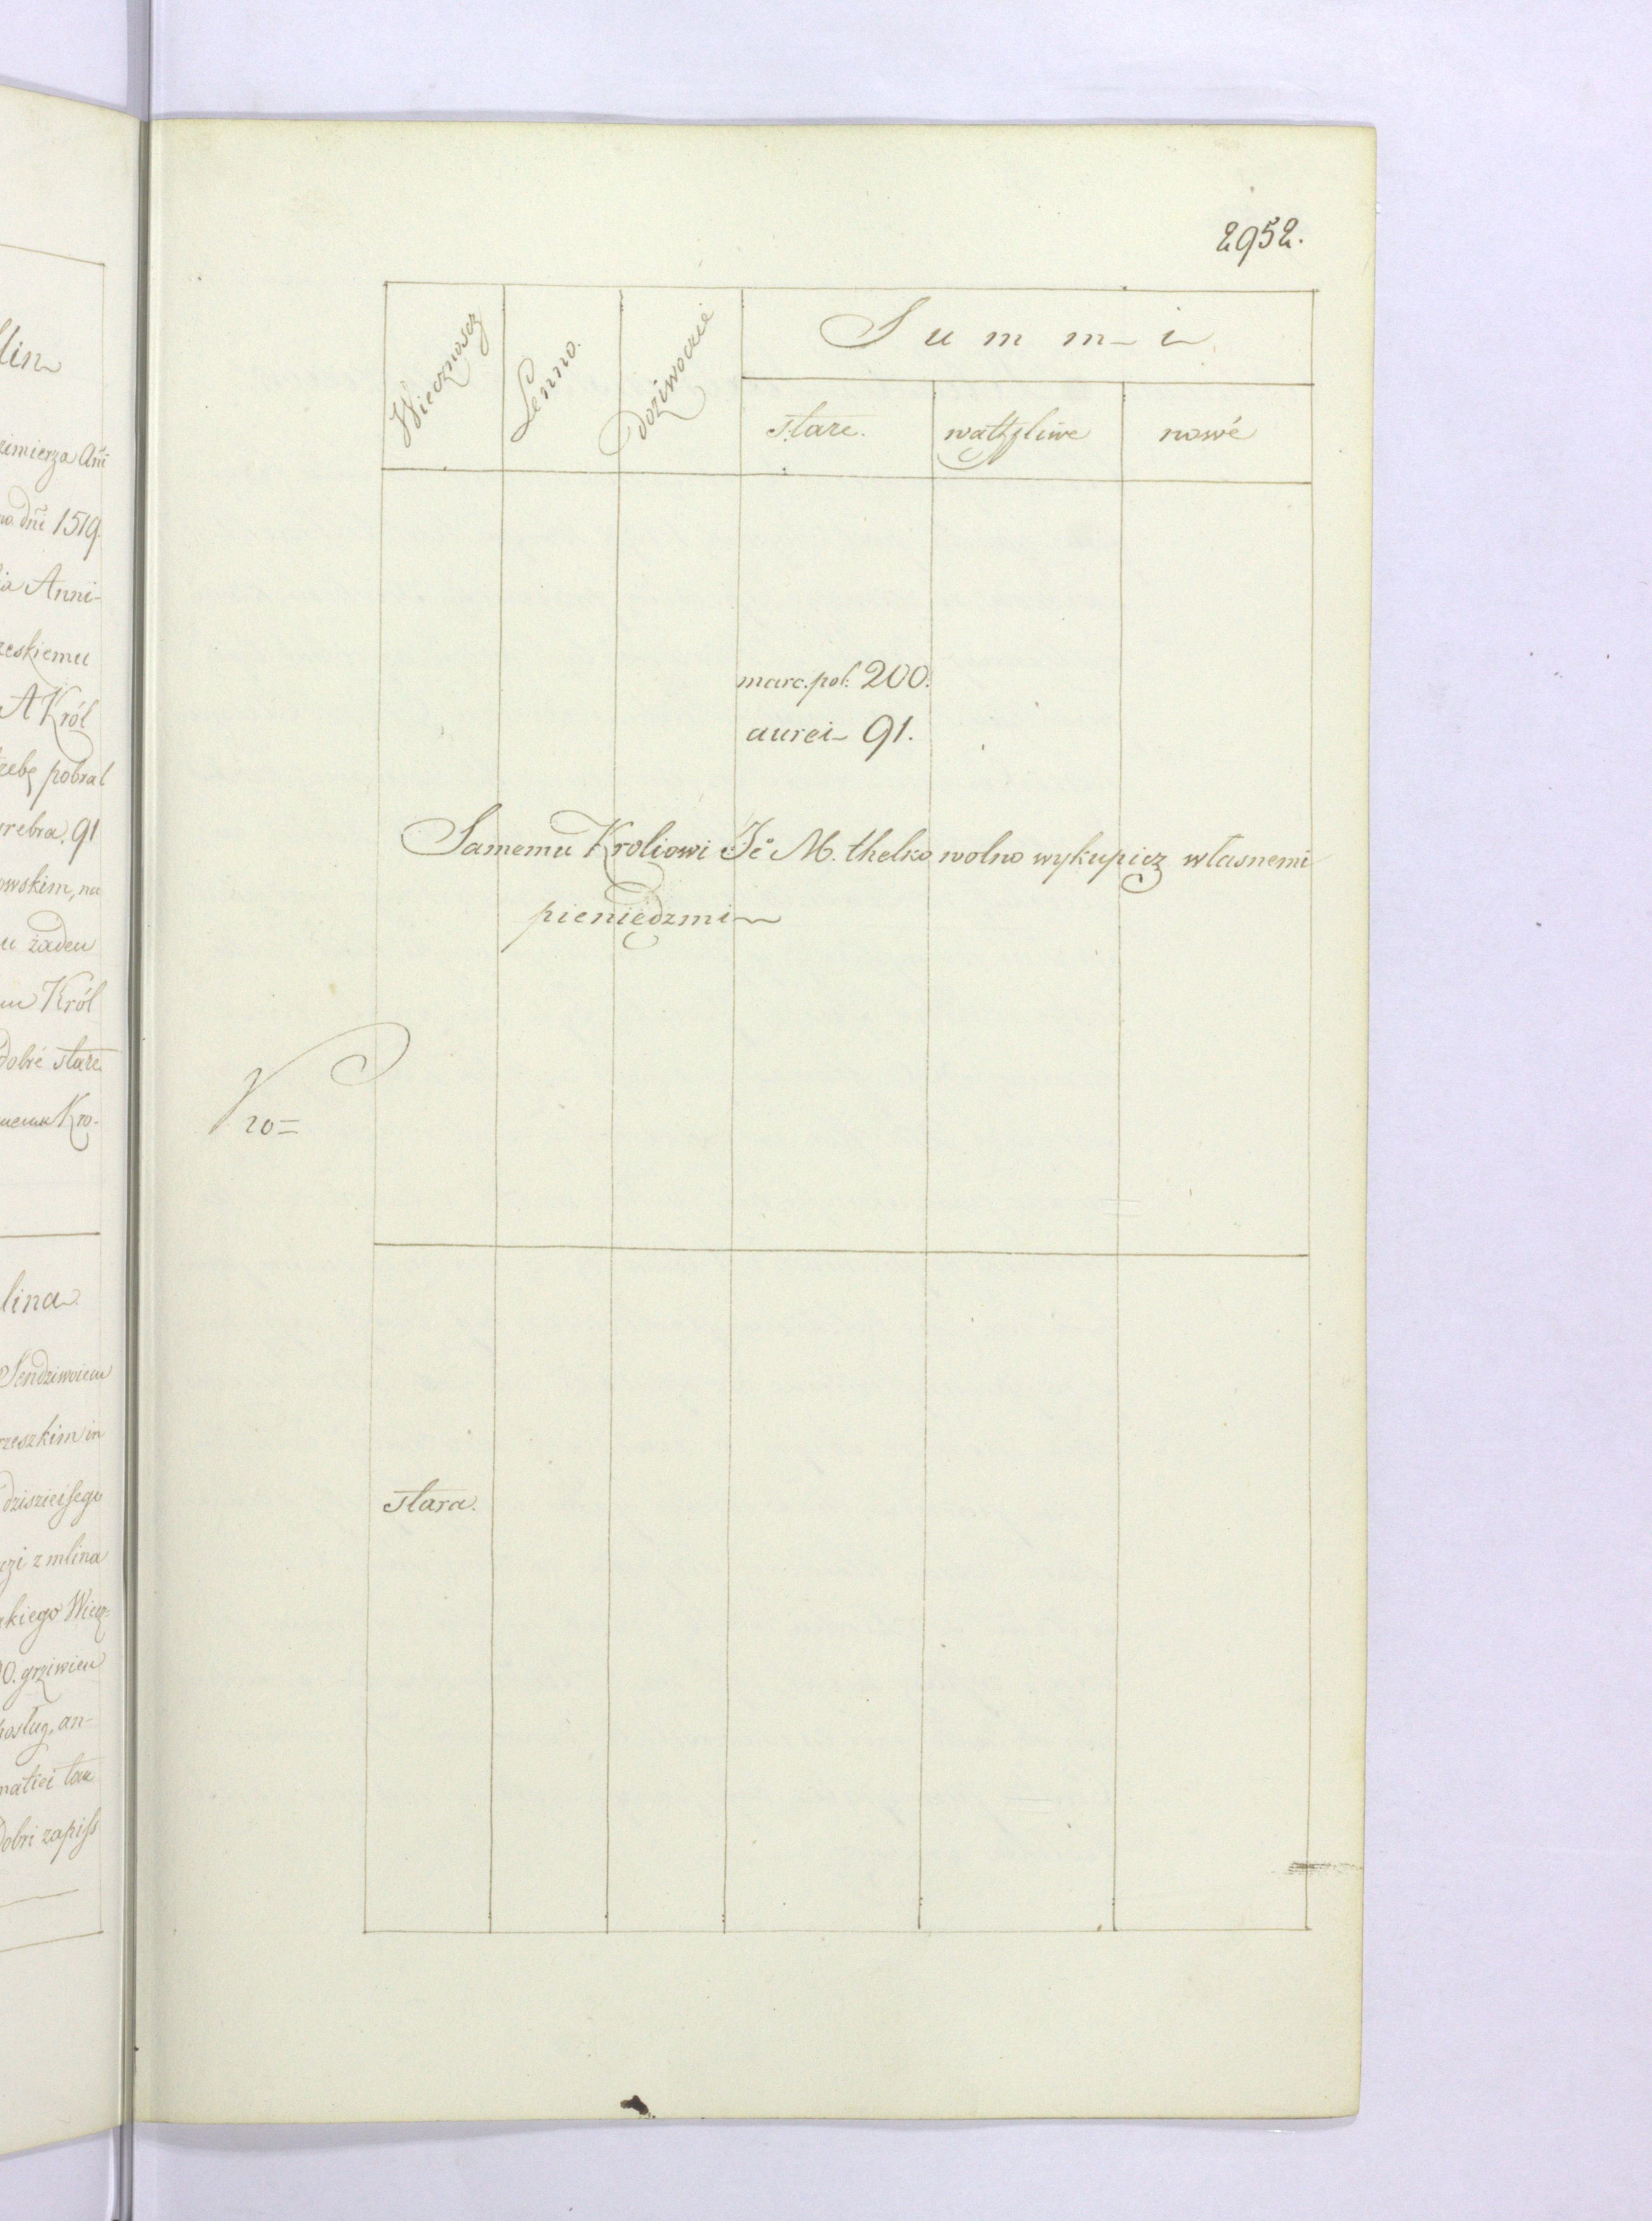 lin
zimierza Añi
dñi 1519.
ia Anni-
zeskiemu
A Król
pobrał
srebra. 91
owskim, na
u żaden
Król
dobré stare
Kro-
lina
Sendziwoiem
rzeszkim in
dziszieiszego
z mlina
kiego Wiecz-
0. grziwien
posług, an-
tak
dobri zapiss
2952.
Wiecznoscz
Lenno.
Doziwocie
Summ-i
stare.
wathpliwe
nowé
marc. pol: 200.
aurei- 91.
Samemu Kroliowi Jé M. thelko wolno wykupicz własnemi
pieniędzmi
stara.